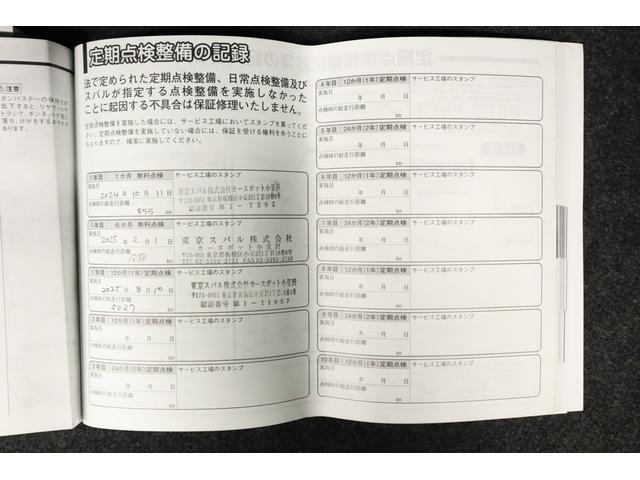 注意
定期点検整備の記録
法で定められた定期点検整備、日常点検整備及び
スバルが指定する点検整備を実施しなかった
ことに起因する不具合は保証修理いたしません。
定期点検整備を実施した場合には、サービス工場においてスタンプを貰ってく
ださい。定期点検整備を実施していない場合には、保証を受ける権利を失うことに
もなりますので、確実に実施してください。
1年目 1か月 無料点検 サービス工場のスタンプ
実施日
2024年10月11日
点検時の総走行距離
855 km
東京スバル株式会社カースポット小豆沢
〒174-0051 東京都板橋区小豆沢1丁目18番6号
認証番号 第1-7392
1年目 6か月 無料点検 サービス工場のスタンプ
実施日
2025年2月1日
点検時の総走行距離
km
東京スバル株式会社
カースポット小豆沢
〒174-0051 東京都板橋区小豆沢
1年目 12か月(1年)定期点検 サービス工場のスタンプ
実施日
2025年8月10日
点検時の総走行距離
5027 km
東京スバル株式会社カースポット小豆沢
〒174-0051 東京都板橋区小豆沢1丁目18番6号
認証番号 第1-11957
2年目 12か月(1年)定期点検 サービス工場のスタンプ
実施日
年 月 日
点検時の総走行距離
km
3年目 24か月(2年)定期点検 サービス工場のスタンプ
実施日
年 月 日
点検時の総走行距離
km
4年目 12か月(1年)定期点検 サービス工場のスタンプ
実施日
年 月 日
点検時の総走行距離
km
5年目 24か月(2年)定期点検 サービス工場のスタンプ
実施日
年 月 日
点検時の総走行距離
km
6年目 12か月(1年)定期点検 サービス工場のスタンプ
実施日
年 月 日
点検時の総走行距離
km
7年目 24か月(2年)定期点検 サービス工場のスタンプ
実施日
年 月 日
点検時の総走行距離
km
8年目 12か月(1年)定期点検 サービス工場のスタンプ
実施日
年 月 日
点検時の総走行距離
km
9年目 24か月(2年)定期点検 サービス工場のスタンプ
実施日
年 月 日
点検時の総走行距離
km
10年目 12か月(1年)定期点検 サービス工場のスタンプ
実施日
年 月 日
点検時の総走行距離
km